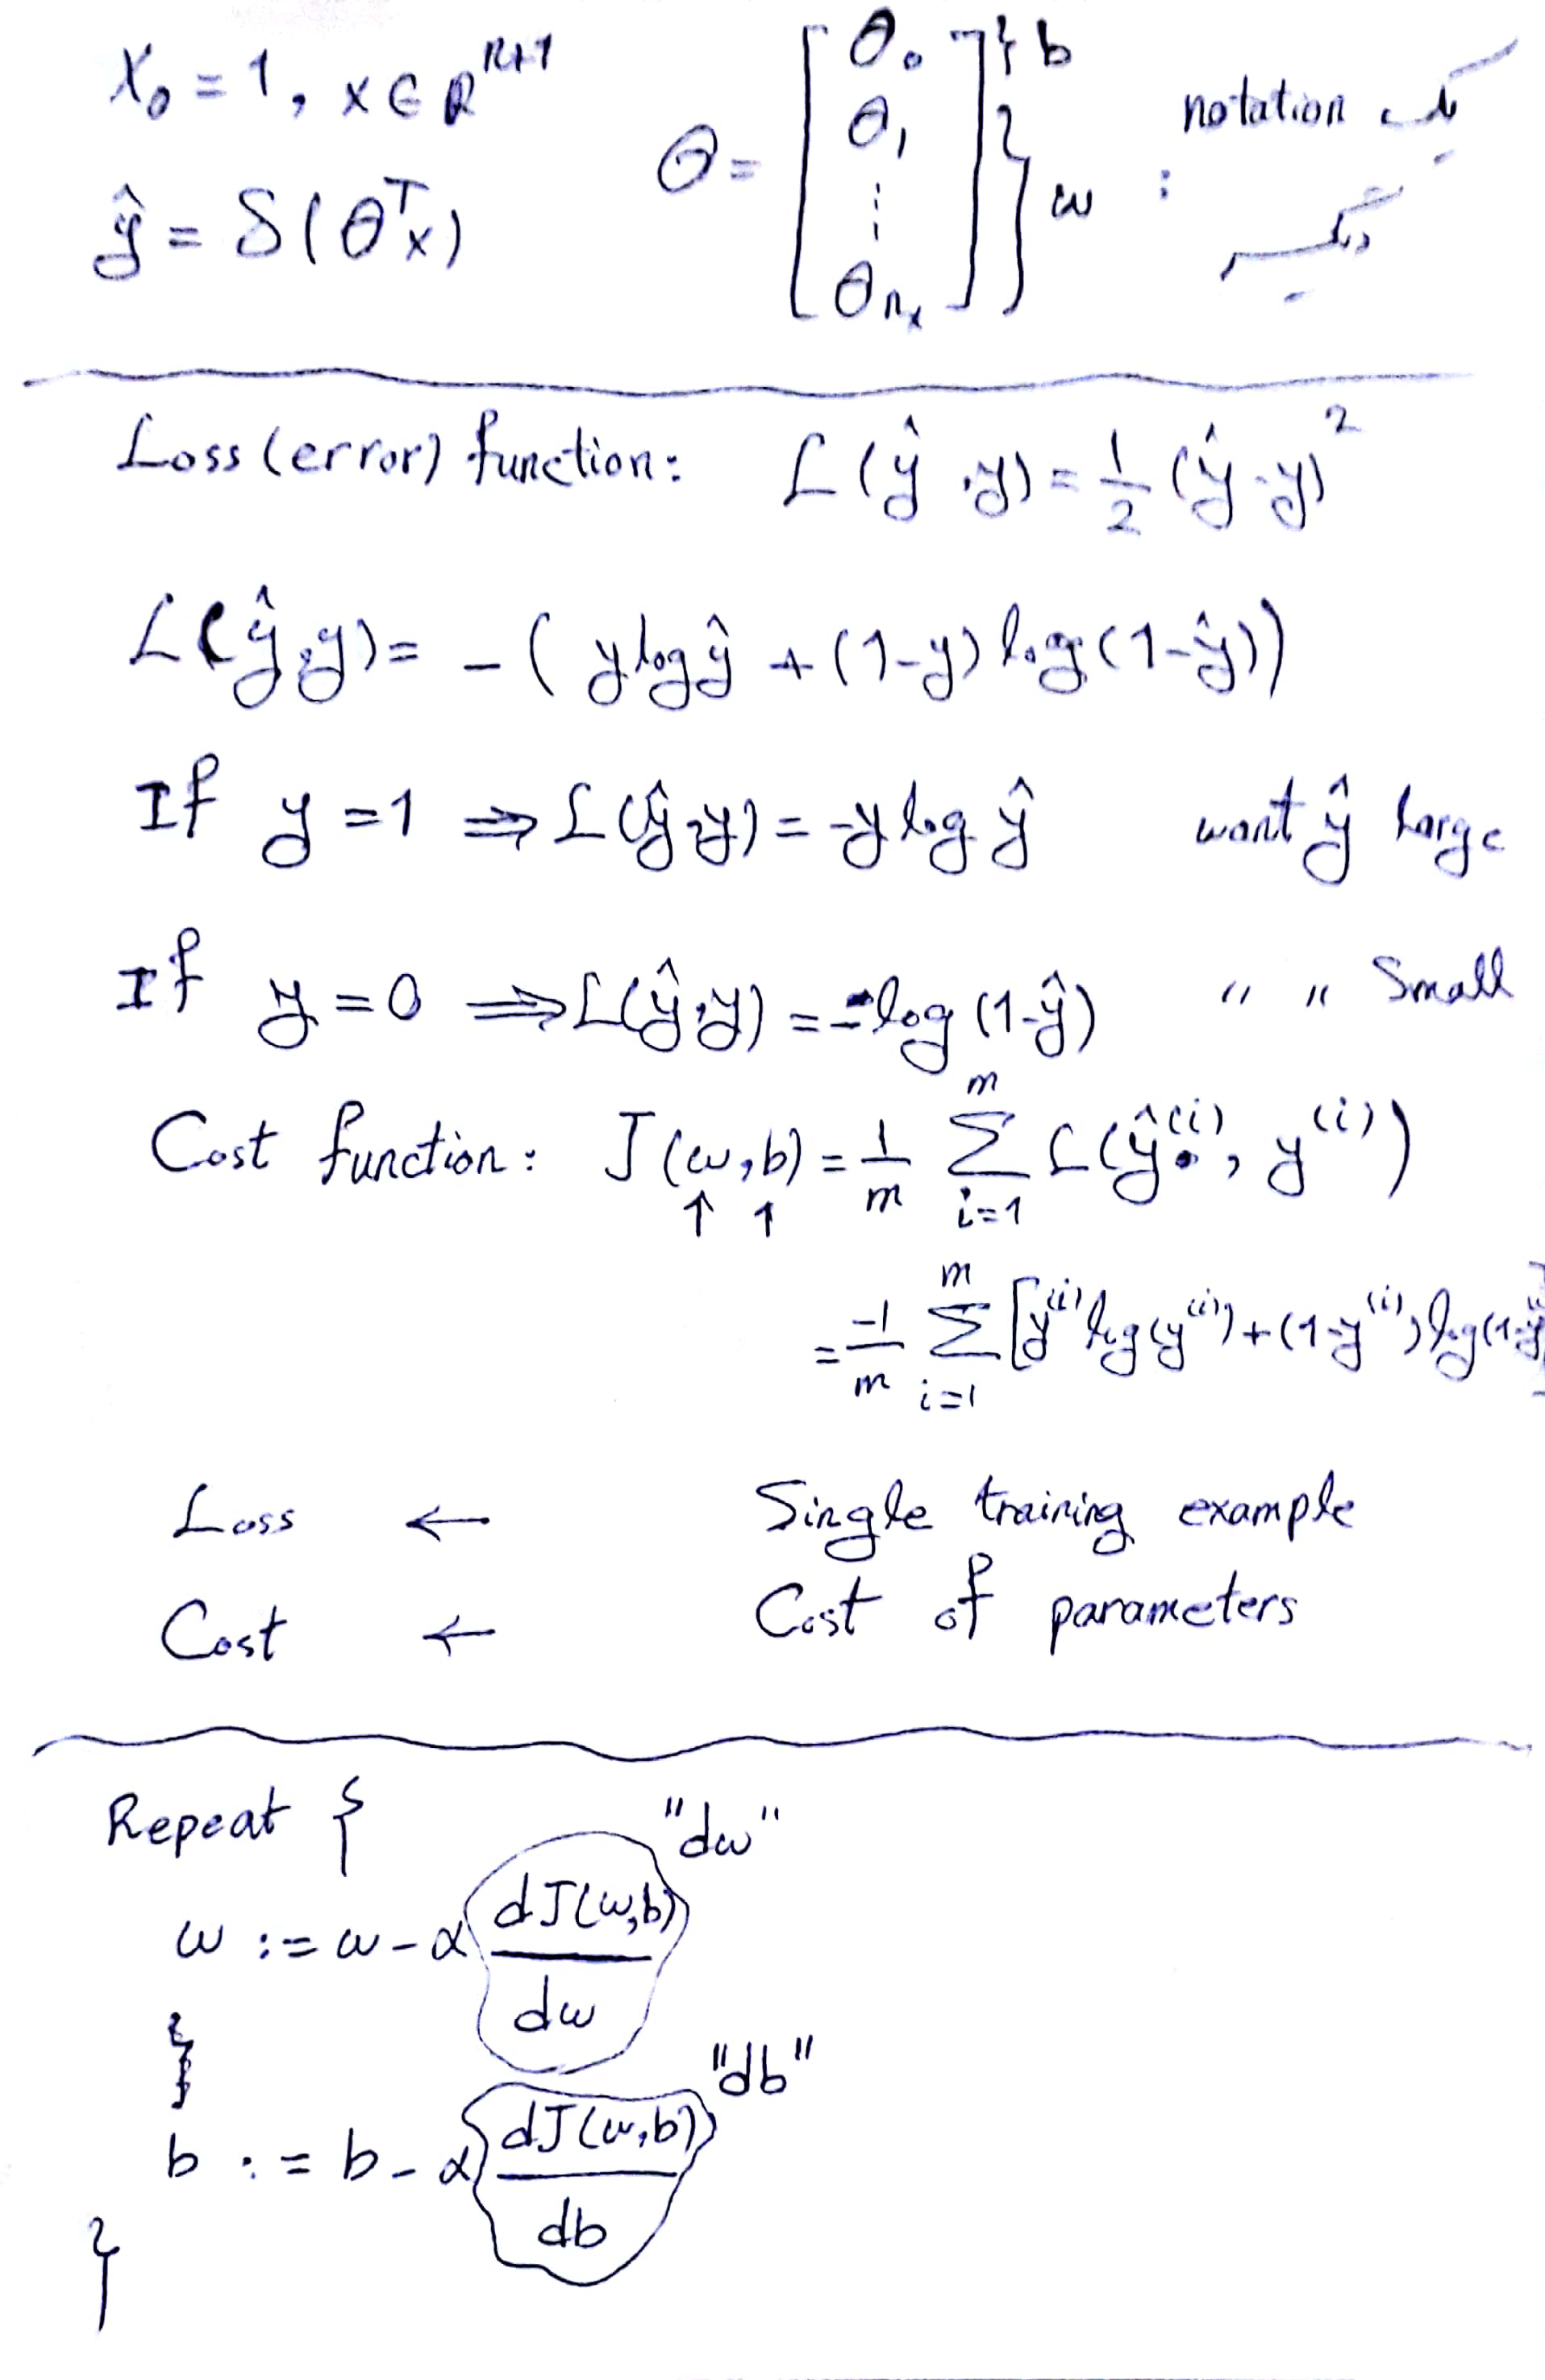 X₀ = 1, x ∈ R^{n+1}
ŷ = δ(θᵀx)
θ = [θ₀ θ₁ ⋮ θ_{nₓ}] } b } w : یک notation دیگر
Loss (error) function: L(ŷ, y) = 1/2 (ŷ - y)²
L(ŷ, y) = -( y log ŷ + (1-y) log (1-ŷ))
If y = 1 ⇒ L(ŷ, y) = -y log ŷ want ŷ large
If y = 0 ⇒ L(ŷ, y) = -log (1-ŷ) " " Small
Cost function: J(w, b) = 1/m Σ_{i=1}^{m} L(ŷ^{(i)}, y^{(i)})
↑ ↑
= -1/m Σ_{i=1}^{m} [y^{(i)} log(y^{(i)}) + (1-y^{(i)}) log(1-ŷ
Loss ← Single training example
Cost ← Cost of parameters
Repeat {
w := w - α dJ(w,b)/dw "dw"
}
b := b - α dJ(w,b)/db "db"
}